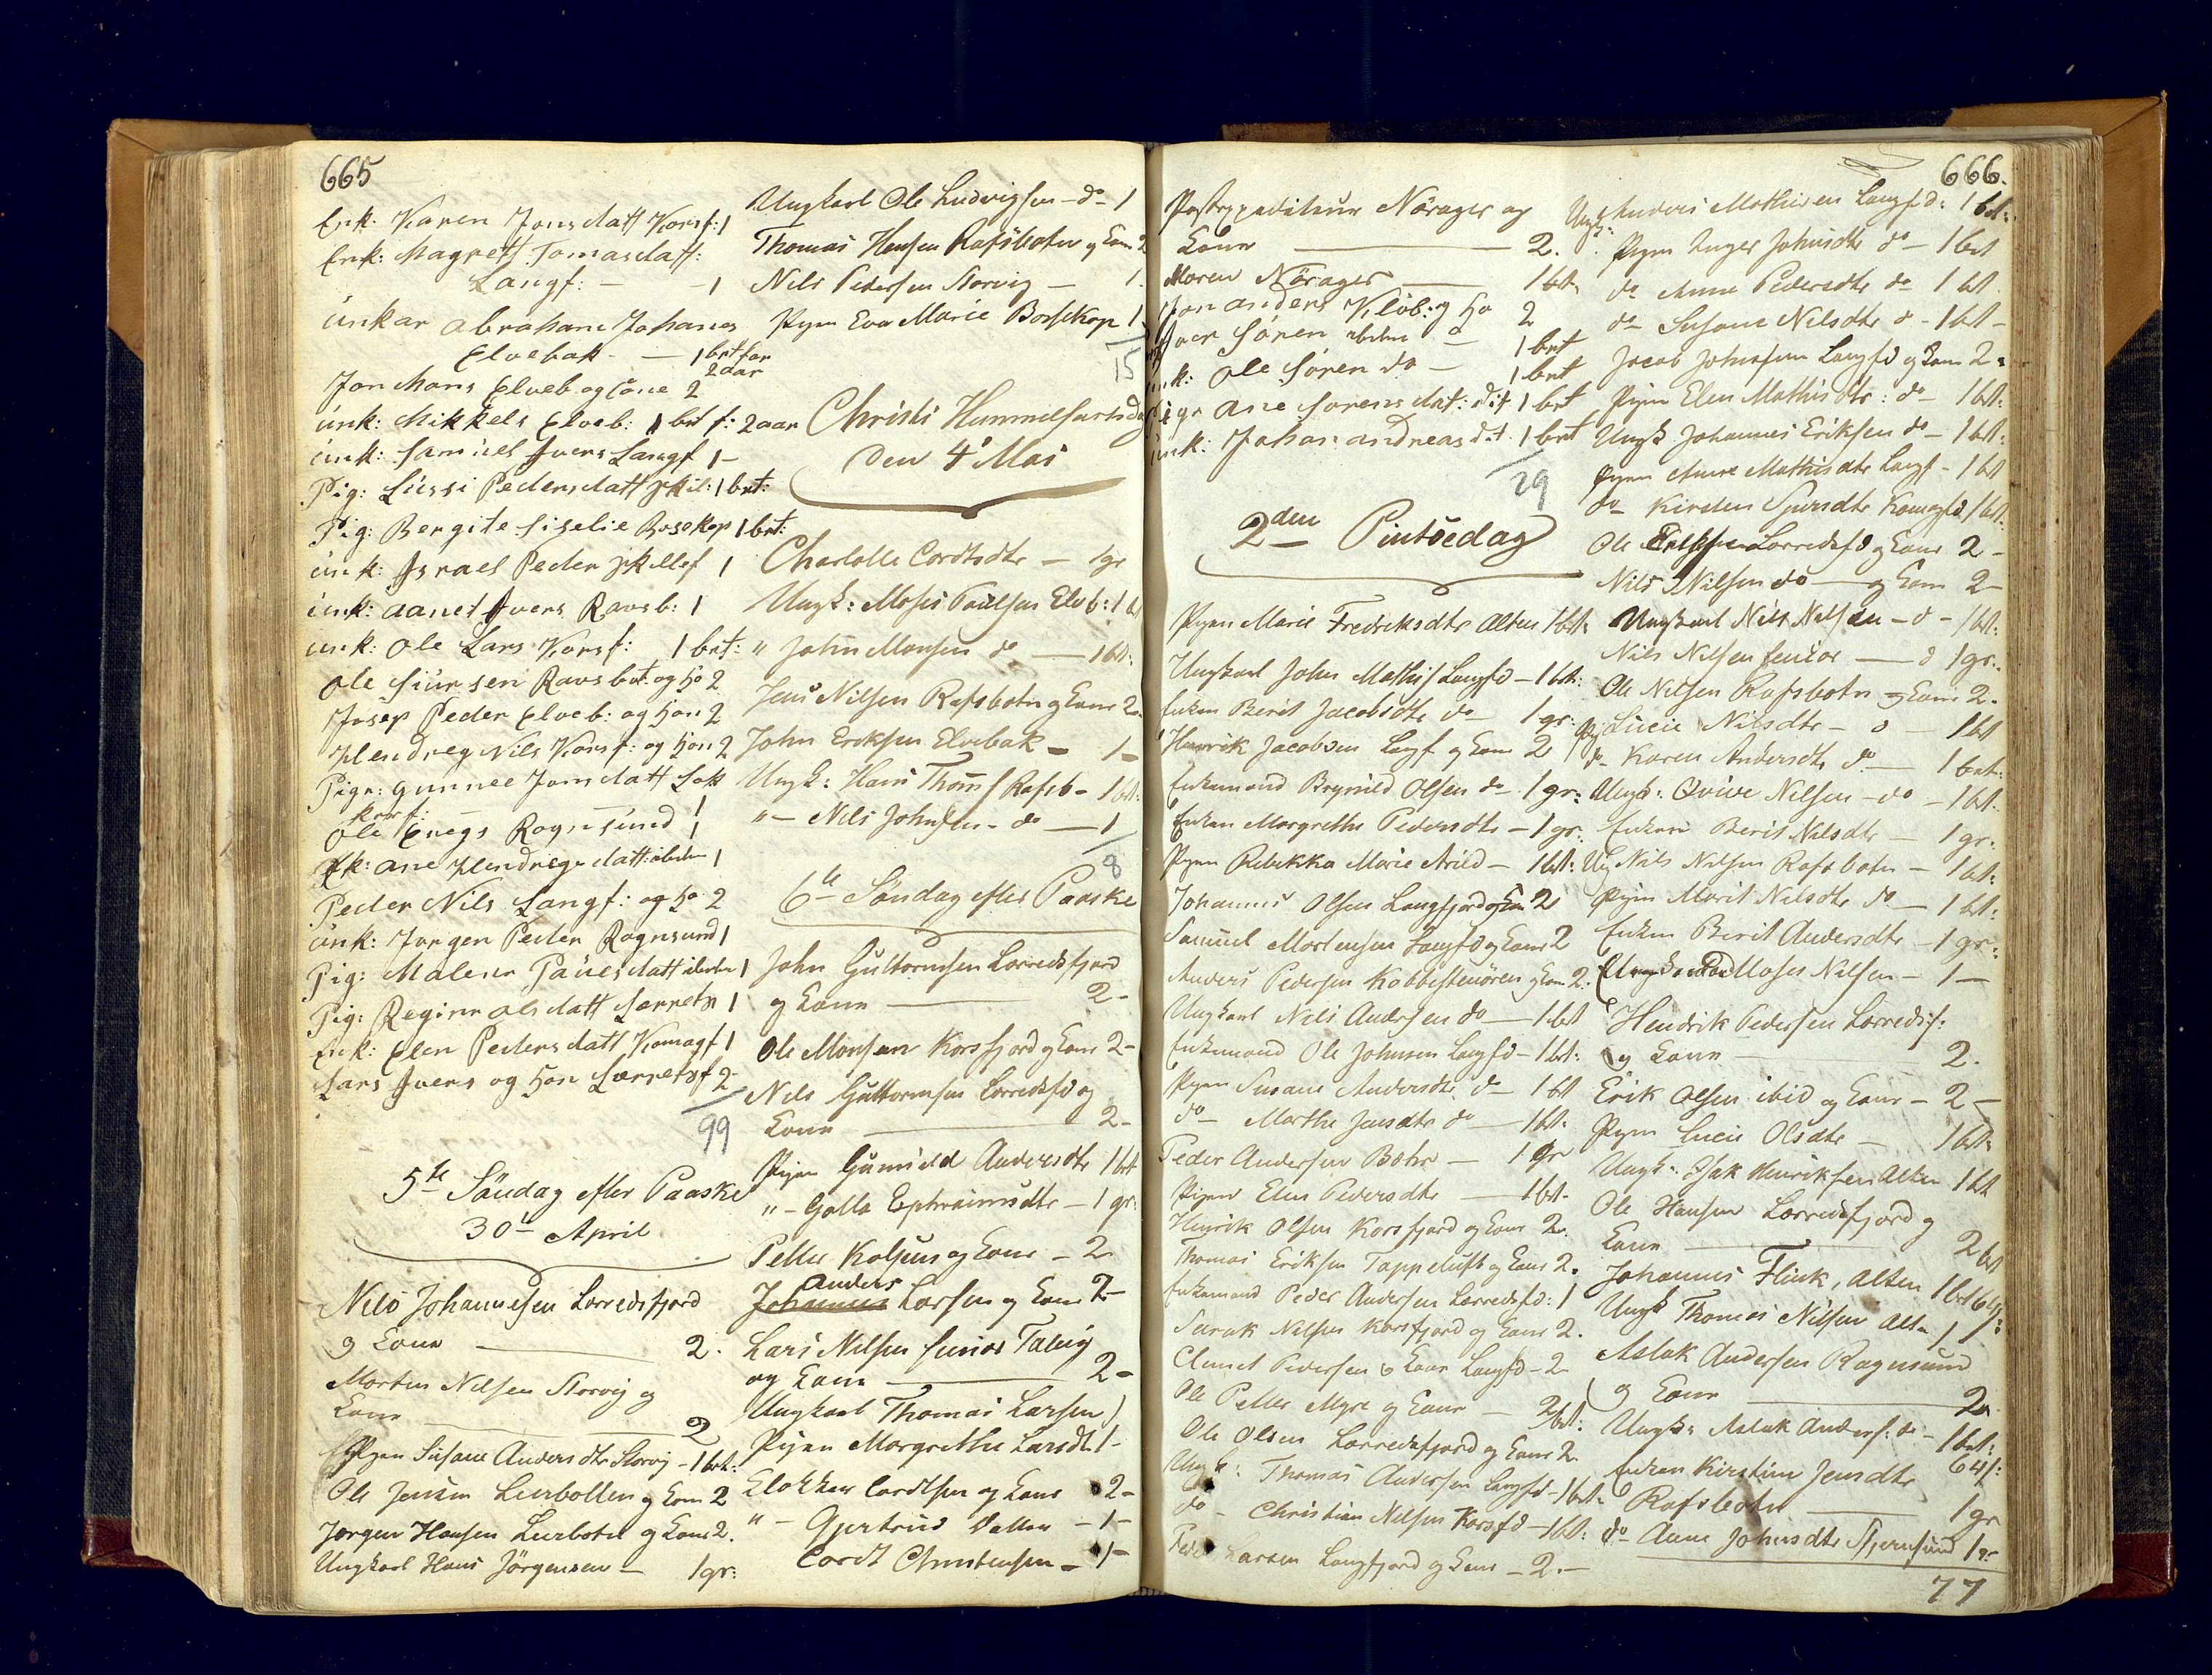 665
Enk: Karen Jonsdatt Korsf: 1
Enk: Magrett Tomasdatt:
Langf: - - 1
únkar abraham Johanes
Elvebak - 1 brt for
2 aar
Jon Mons Elveb og cone 2
únk: Mikkels Elveb: 1 brt f: 2 aar
únk: Samúel Ivers Langf 1 -
Pig: Lússi Pedersdatt 1 brt:
Pig: Bergite Siselie Bosekop 1 brt:
únk: Israel Peder 1
únk: aanet Ivers Ravsb: 1
únk: Ole Lars Korsf: 1 brt:
Ole Siúrsen Ravsbot og ho 2
Josep Peder Elveb: og hon 2
Hendreg Nils Korsf: og hon 2
Pige: gunnee Jonsdatt
Korsf: 1
Ole Rognsúnd 1
Ek: ane Hendregsdatt: ibidem 1
Peder Nils Langf: og ho 2
únk: Jorgen Peder Rognsund 1
Pig: Malene Paúlsdatt ibidem 1
Pig: Regine olsdatt 1
Enk: Elen Pedersdatt Komagf 1
Lars Ivers og hon 2
99
5te Söndag efter Paaske
30te April
Nils Johannesen Lerredsfjord
og Kone 2.
Morten Nilsen Storvig og
Kone 2
Pigen Susane Andersdtr Storvig - 1 brt:
Ole Jensen Lerbotten og Kone 2
Jørgen Hansen Lerbotn og Kone 2.
Ungkarl Hans Jörgensen - 1 gr:
Ungkarl Ole Ludvigsen - do - 1
Thomas Hansen Rafsbotn og Kone 2
Nils Pedersen Storvig - 1.
Pigen Eva Marie Bossekop 1
15
Christi Himmelfartsdag
den 4de Mai
Charlotte Cordtsdtr - 1 gr
Ungk: Moses Poulsen Elvb: 1 bt
" John Monsen do - 1 bt:
Jens Nilsen Rafsbotn og Kone 2.
John Eriksen Elvebak - 1 -
Ungk: Hans Thoms Rafsb - 1 bt:
" - Nils Johnsen - do - 1
8
6te Söndag efter Paaske
John Guttormsen Lerredsfjord
og Kone 2 -
Ole Monsen Korsfjord og Kone 2 -
Nils Guttormsen Lerredsfd og
Kone 2 -
Pigen Gunild Andersdtr 1 bt
" - Golla Ephraimsdtr - 1 gr:
Petter og Kone - 2.
Anders
Johannes Larsen og Kone 2 -
Lars Nilsen senior Talvig
og Kone 2 -
Ungkarl Thomas Larsen 1
Pigen Margrethe Larsdtr 1 -
Klokker Cordtsen og Kone 2 -
" - Gjertrud Datter - 1 -
Cordt Christensen - 1 -
666.
Postexpediteur Nörager og
Kone 2.
Maren Nörager 1 bt.
Jon anders Klöb: og ho 2
Iver Sören ibidm 1 brt
únk: Ole Sören do - 1 brt
Pige ane Sörensdat: dit 1 brt
únk: Johan andreas dit 1 brt
29
2den Pintsedag
Pigen Marie Fredriksdtr Alten 1 bt:
Ungkarl John Mathis Langfd - 1 bt:
Enken Berit Jacobsdtr do - 1 gr:
Henrik Jacobsen Langf og Kone 2
Enkemand Brynild Olsen do 1 gr:
Enken Margrethe Pedersdtr - 1 gr.
Pigen Rebekka Marie Arild - 1 bt:
Johannes Olsen Langfjord og Kone 2
Samuel Mortensen Langfd og Kone 2
Anders Pedersen Kobbestenören og Kone 2.
Ungkarl Nils Andersen do - 1 bt
Enkemand Ole Johnsen Langfd - 1 bt:
Pigen Susane Andersdtr do - 1 bt
do - Marthe Jensdtr do - 1 bt:
Peder Andersen Botn - 1 gr
Pigen Elen Pedersdtr - 1 bt.
Henrik Olsen Korsfjord og Kone 2.
Thomas Eriksen Tappeluft og Kone 2.
Enkemand Peder Andersen Lerredsfd: 1
Sarak Nilsen Korsfjord og Kone 2.
Clemet Pedersen & Kone Langfd - 2 -
Ole Petter Myre og Kone - 2 bt:
Ole Olsen Lerredsfjord og Kone 2.
Ungk: Thomas Andersen Langfd - 1 bt:
do - Christian Nilsen Korsfd - 1 bt:
Peder Larsen Langfjord og Kone - 2. -
Ungk: Anders Mathisen Langfd: 1 bt:
Pigen Inger Johnsdtr do - 1 bt
do Anne Pedersdtr do 1 bt
do - Susane Nilsdtr do - 1 bt -
Jacob Johnsen Langfd og Kone 2.
Pigen Elen Mathisdtr: do - 1 bt:
Ungk Johannes Eriksen do - 1 bt:
Pigen Anne Mathisdtr Langf - 1 bt
do - Kirsten Sjursdtr Komagfd 1 bt:
Ole Lerredsfd og Kone 2 -
Nils Nilsen do - og Kone 2 -
Ungkarl Nils Nilsen - do - 1 bt:
Nils Nilsen senior - do 1 gr.
Ole Nilsen Rafsbotn og Kone 2.
Pig Lucie Nilsdtr - do - 1 bt
do - Karen Andersdtr do - 1 brt:
Ungk: Qvive Nilsen - do - 1 bt.
Enken Berit Nilsdtr - 1 gr.
Ung Nils Nilsen Rafsbotn - 1 bt:
Pigen Marit Nilsdtr do - 1 bt:
Enken Berit Andersdtr - 1 gr:
Moses Nilsen - 1 -
Hendrik Pedersen Lerredsf:
og Kone 2.
Erik Olsen ibid og Kone - 2 -
Pigen Lucie Olsdtr - 1 bt.
Ungk: Isak Henriksen Alten 1 bt
Ole Hansen Lerredsfjord og
Kone 2 bt
Johannes Flink, Alten 1 bt 64 s:
Ungk Thomas Nilsen Alten 1
Aslak Andersen Rognsund
og Kone 2.
Ungk: Aslak Anders: do - 1 bt:
64 s:
Enken Kirstine Jensdtr
Rafsbotn 1 gr
do - Anne Johnsdtr Stjernsund 1 gr
77